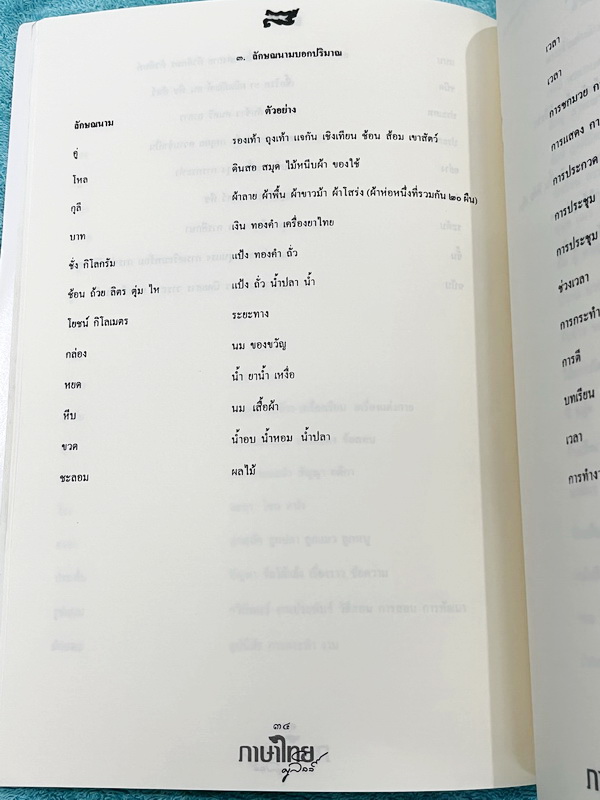 ๓. ลักษณนามบอกปริมาณ
ลักษณนาม ตัวอย่าง
คู่ รองเท้า ถุงเท้า แจกัน เชิงเทียน ช้อน ส้อม เขาสัตว์
โหล ดินสอ สมุด ไม้หนีบผ้า ของใช้
กุลี ผ้าลาย ผ้าพื้น ผ้าขาวม้า ผ้าโสร่ง (ผ้าห่อหนึ่งที่รวมกัน ๒๐ ผืน)
บาท เงิน ทองคำ เครื่องยาไทย
ชั่ง กิโลกรัม แป้ง ทองคำ ถั่ว
ช้อน ถ้วย ลิตร ตุ่ม ไห แป้ง ถั่ว น้ำปลา น้ำ
โยชน์ กิโลเมตร ระยะทาง
กล่อง นม ของขวัญ
หยด น้ำ ยาน้ำ เหงื่อ
หีบ นม เสื้อผ้า
ขวด น้ำอบ น้ำหอม น้ำปลา
ชะลอม ผลไม้
๓๔
ภาษาไทย
เวลา
เวลา
การชกมวย
การแสดง
การประกวด
การประชุม
การประชุม
ช่วงเวลา
การกระทำ
การตี
บทเรียน
เวลา